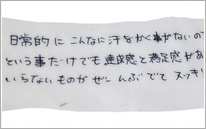 日常的にこんなに汗をかく事がないので
という事だけでも達成感と満足感があ
いらないものがぜーんぶでて スッキ